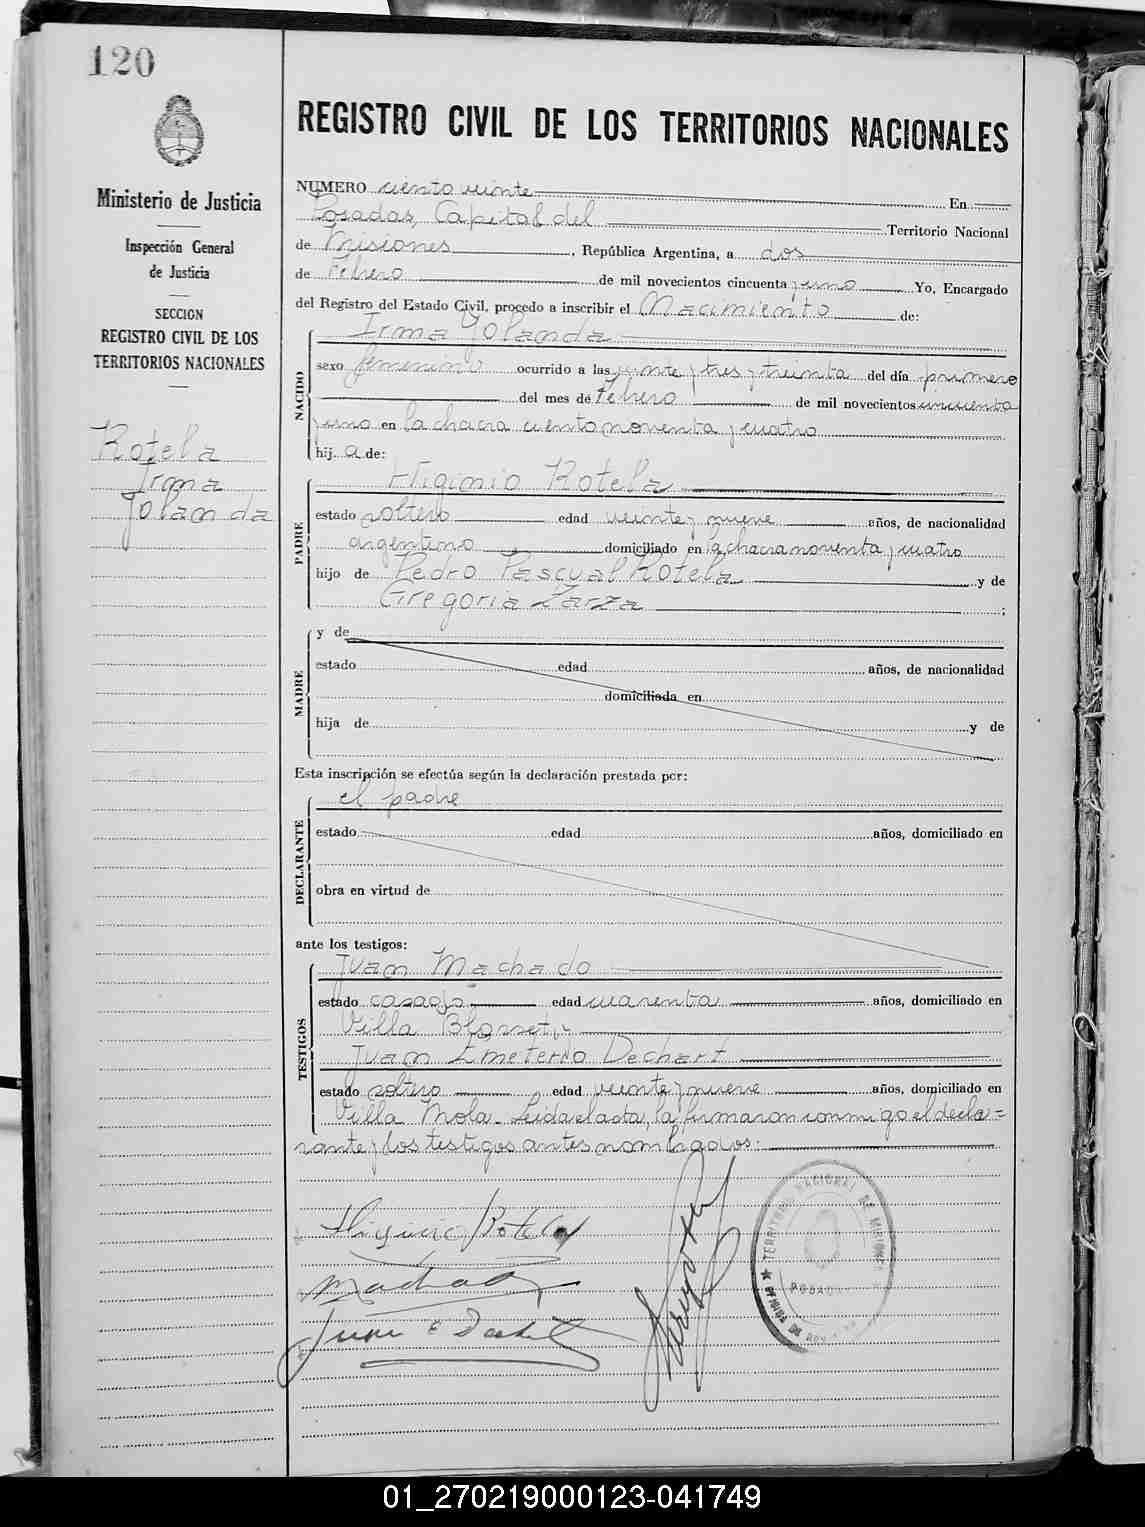 120
Ministerio de Justicia
Inspección General
de Justicia
SECCION
REGISTRO CIVIL DE LOS
TERRITORIOS NACIONALES
Rotela
Irma
Yolanda
REGISTRO CIVIL DE LOS TERRITORIOS NACIONALES
NUMERO ciento veinte En
Posadas, Capital del Territorio Nacional
de Misiones, República Argentina, a dos
de Febrero de mil novecientos cincuenta y uno Yo, Encargado
del Registro del Estado Civil, procedo a inscribir el Nacimiento de:
NACIDO
Irma Yolanda
sexo femenino ocurrido a las veinte y tres y treinta del día primero
del mes de Febrero de mil novecientos cincuenta
y uno en la chacra ciento noventa y cuatro
hij a de:
PADRE
Higinio Rotela
estado soltero edad veinte y nueve años, de nacionalidad
argentino domiciliado en la chacra noventa y cuatro
hijo de Pedro Pascual Rotela y de
Gregoria Zarza ;
MADRE
y de
estado edad años, de nacionalidad
domiciliada en
hija de y de
Esta inscripción se efectúa según la declaración prestada por:
DECLARANTE
el padre
estado edad años, domiciliado en
obra en virtud de
ante los testigos:
TESTIGOS
Juan Machado
estado casado edad cuarenta años, domiciliado en
Villa Blosset, y
Juan Emeterio Dechart
estado soltero edad veinte y nueve años, domiciliado en
Villa Mola. Leida el acta, la firmaron conmigo el decla=
rante y los testigos antes nombrados.
Higinio Rotela
Machado
Juan E Dechart
TERRITORIO NACIONAL DE MISIONES
POSADAS
01_270219000123-041749